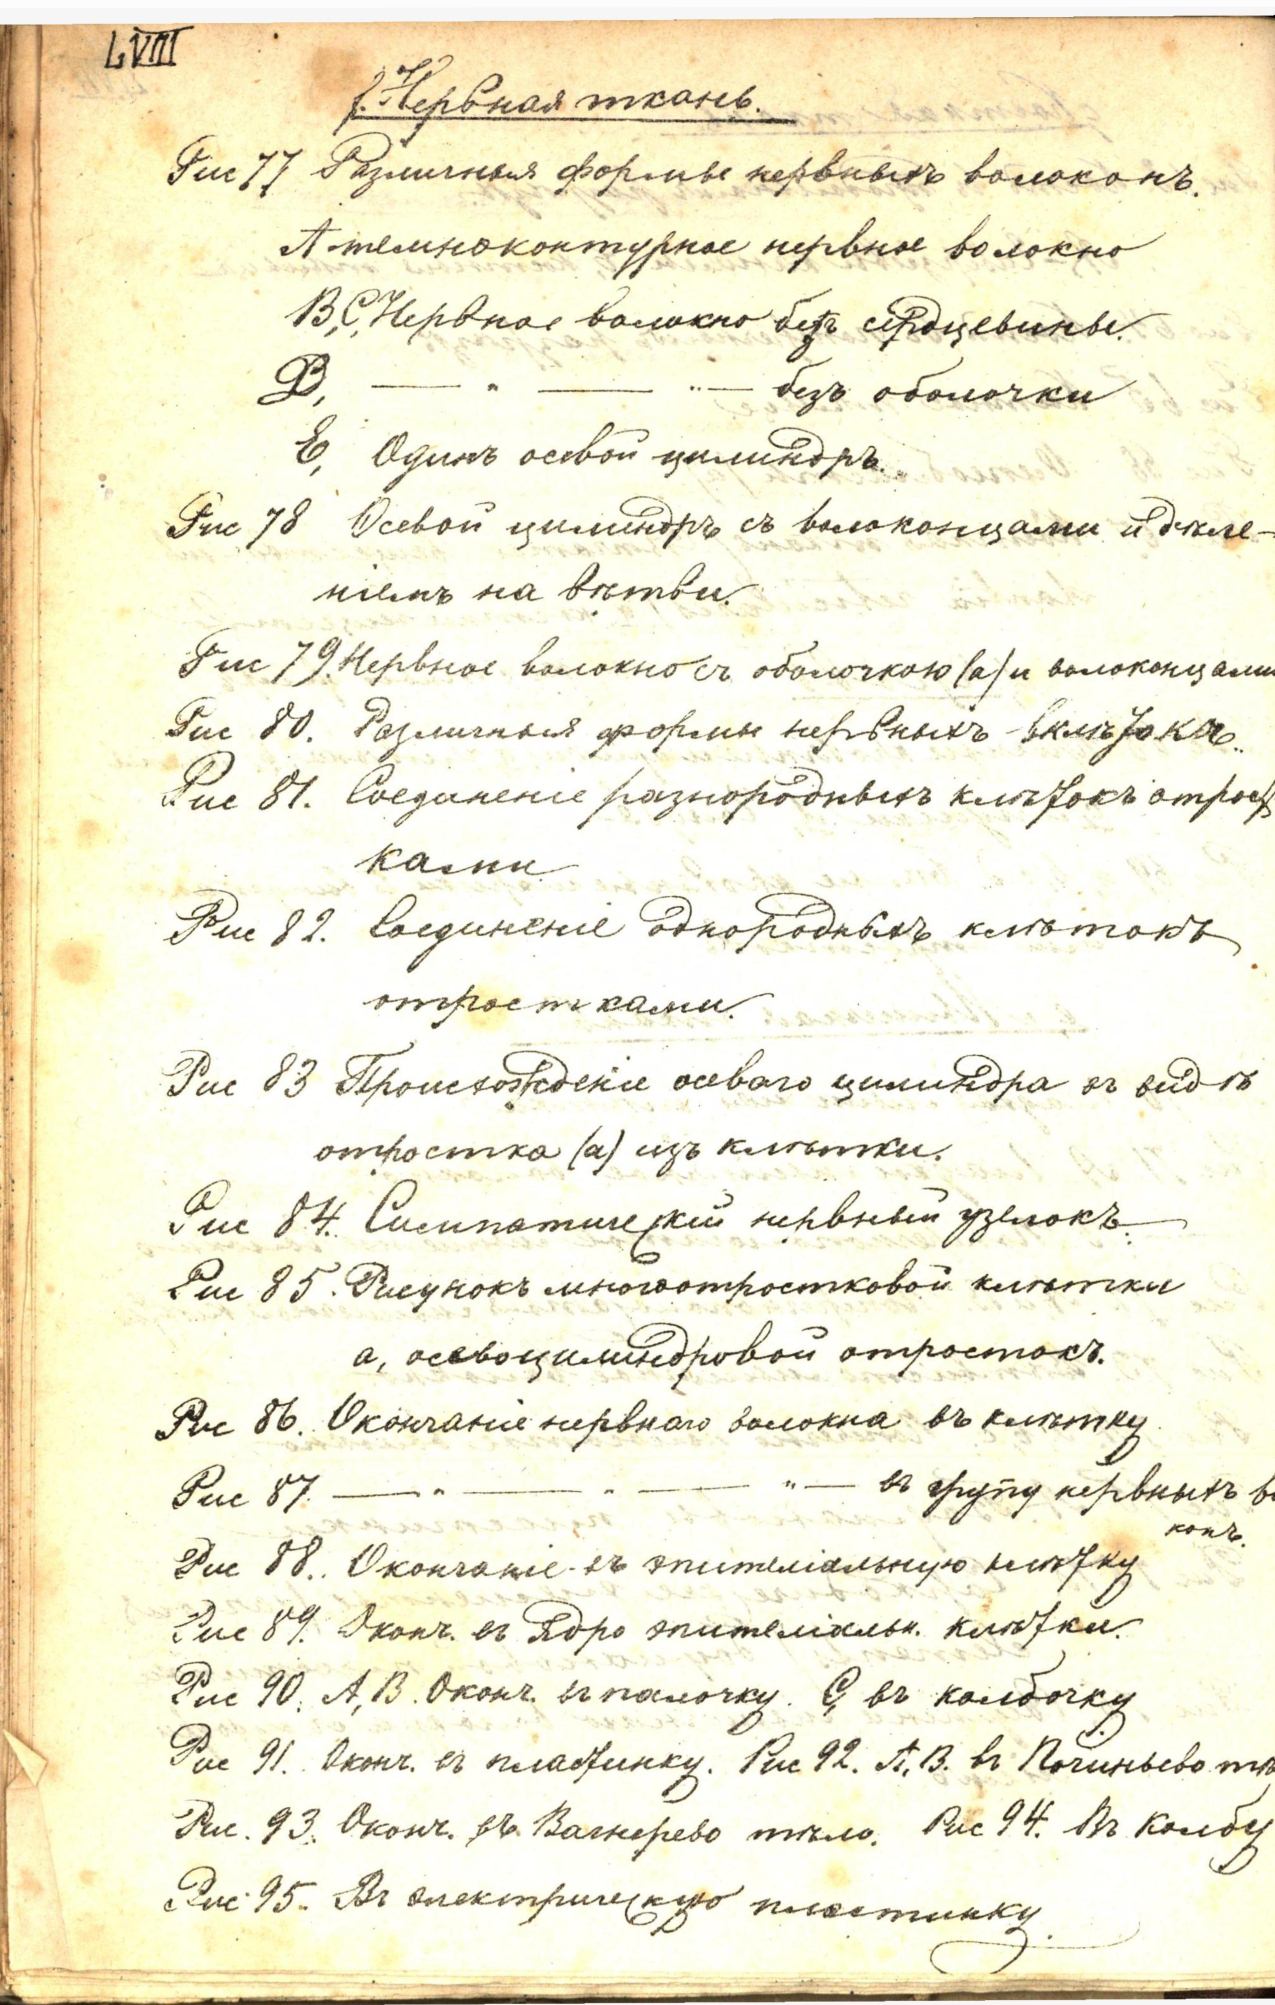 LVIII
f. Нервная ткань.
Рис 77 Различныя формы нервныхъ волоконъ.
А темноконтурное нервное волокно
В, С, Нервное волокно безъ сердцевины.
D, — " — " — безъ оболочки
Е, Одинъ осевой цилиндръ.
Рис 78 Осевой цилиндръ съ волоконцами и дѣле-
ніемъ на вѣтви.
Рис 79. Нервное волокно съ оболочкою (а) и волоконцами
Рис 80. Различныя формы нервныхъ клѣтокъ.
Рис 81. Соединеніе разнородныхъ клѣтокъ отрост
ками
Рис 82. Соединеніе однородныхъ клѣтокъ
отростками.
Рис 83 Происхожденіе осеваго цилиндра въ видѣ
отростка (а) изъ клѣтки.
Рис 84. Симпатическій нервный узелокъ.
Рис 85. Рисунокъ многоотростковой клѣтки
а, осевоцилиндровой отростокъ.
Рис 86. Окончаніе нервнаго волокна въ клѣтку
Рис 87. — " — " — " — въ групу нервныхъ во
конъ.
Рис 88. Окончаніе въ эпителіальную клѣтку
Рис 89. Оконч. въ ядро эпителіальн. клѣтки.
Рис 90. А, В. Оконч. въ палочку. С, въ колбочку
Рис 91. Оконч. въ пластинку. Рис 92. А, В. въ Починьево тѣ
Рис. 93. Оконч. въ Вагнерево тѣло. Рис 94. Въ колбу
Рис 95. Въ электрическую пластинку.